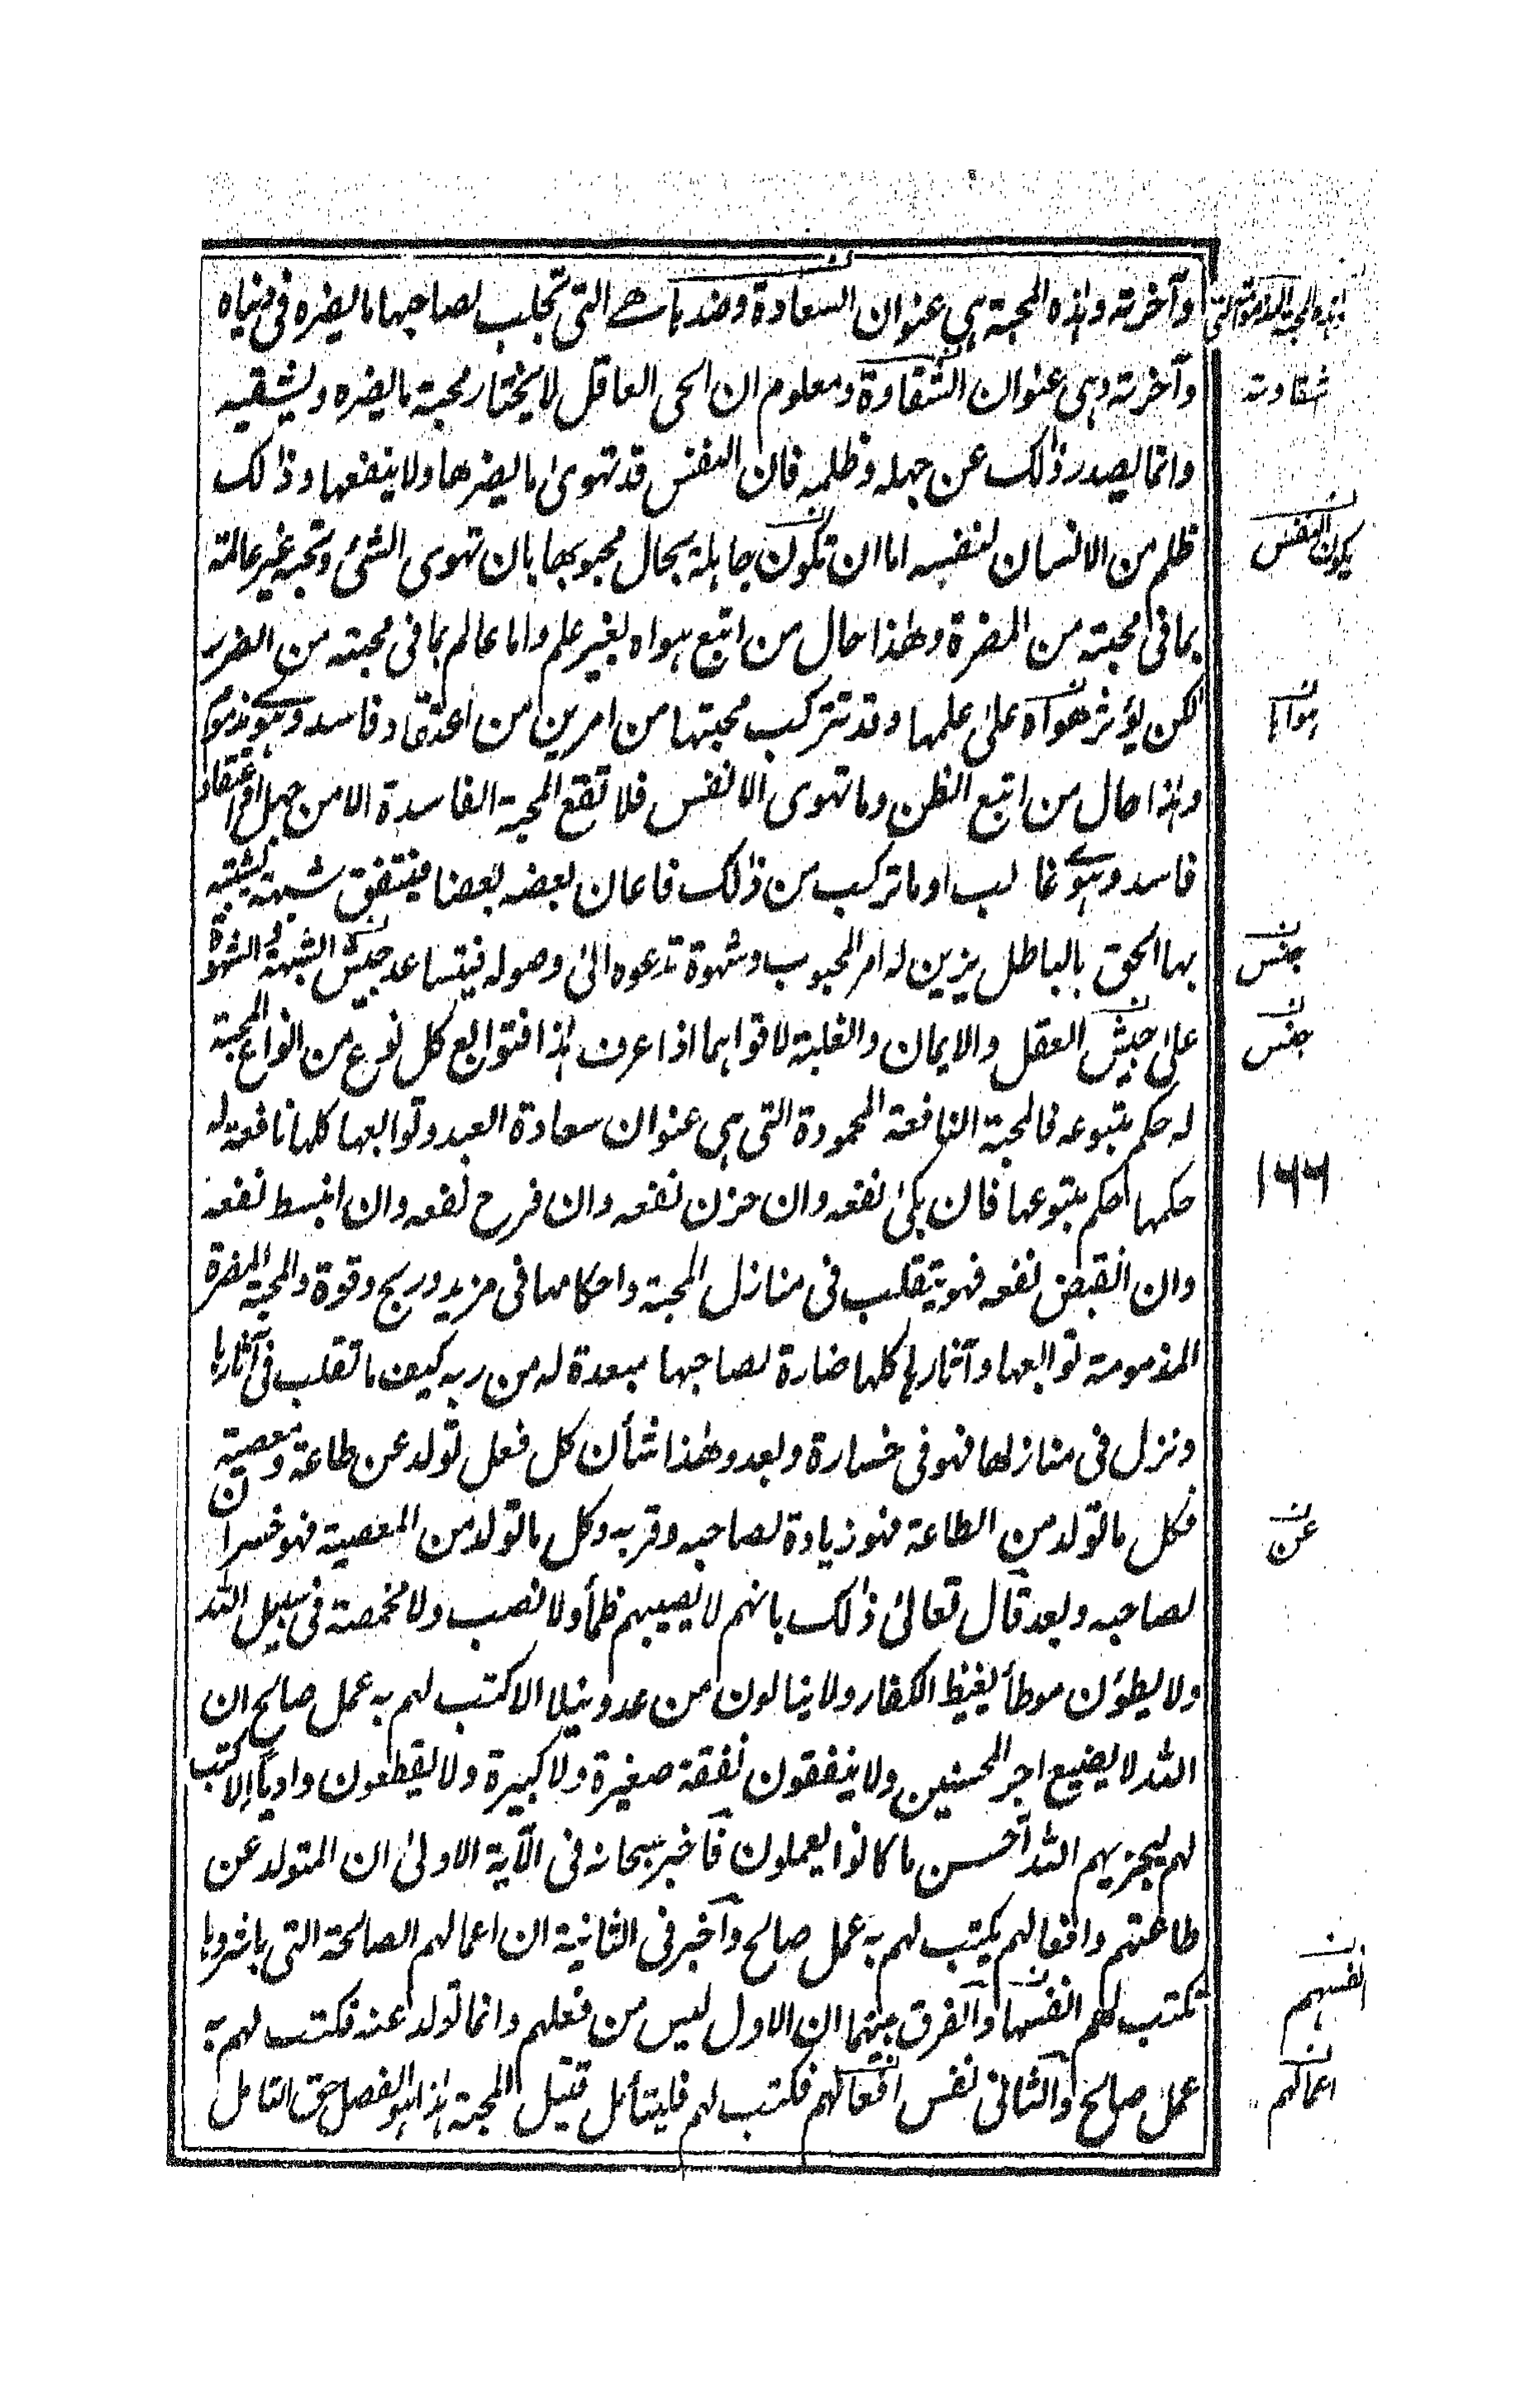 وآخرته وہذه المحبة ہی عنوان السعادة وضدہا ھے التی تجلب لصاحبہا ما یضره فی دنیاه
وآخرته وہی عنوان الشقاوة ومعلوم ان الحی العاقل لا یختار محبة ما یضره ویشقیه
وانما یصدر ذٰلک عن جہله وظلمه فان النفس قد تہویٰ ما یضرھا ولا ینفعہا وذٰلک
ظلم من الانسان لنفسه اما ان تکون جاہلة بحال محبوبھا بان تہوی الشیٔ وتحبه غیر عالمة
بما فی محبته من المضرة وھٰذا حال من اتبع ہواه بغیر علم واما عالم بما فی محبته من الضرر
لکن یؤثر ھواه علیٰ علمہا وقد تترکب محبتہا من امرین من اعتقاد فاسد وہوے مذموم
وہٰذا حال من اتبع الظن وما تہوی الانفس فلا تقع المحبة الفاسدة الا من جہل او اعتقاد
فاسد وہوے غالب او ما ترکب من ذٰلک فاعان بعضه بعضا فیتفق شبہة یشتبه
بہا الحق بالباطل یزین له امر المحبوب وشہوة تدعوه الیٰ وصوله فیتساعد جیش الشبہة والشہوة
علیٰ جیش العقل والایمان والغلبة لاقواہما اذا عرف ہٰذا فتوابع کل نوع من انواع المحبة
له حکم متبوعه فالمحبة النافعة المحمودة التی ہی عنوان سعادة العبد وتوابعہا کلہا نافعة له
حکمہا حکم متبوعہا فان بکیٰ نفعه وان حزن نفعه وان فرح نفعه وان انبسط نفعه
وان انقبض نفعه فہو یتقلب فی منازل المحبة واحکامہا فی مزید وربح وقوة والمحبة المضرة
المذمومة توابعہا وآثارہا کلہا ضارة لصاحبہا مبعدة له من ربه کیف ما تقلب فی آثارہا
ونزل فی منازلھا فہو فی خسارة وبعد وھٰذا شأن کل فعل تولد عن طاعة ومعصیة
فکل ما تولد من الطاعة فہو زیادة لصاحبه وقربه وکل ما تولد من المعصیة فہو خسران
لصاحبه وبعد قال تعالیٰ ذٰلک بانہم لا یصیبہم ظمأ ولا نصب ولا مخمصة فی سبیل الله
ولا یطؤن موطأ یغیظ الکفار ولا ینالون من عدو نیلا الا کتب لہم به عمل صالح ان
الله لا یضیع اجر المحسنین ولا ینفقون نفقة صغیرة ولا کبیرة ولا یقطعون وادیاً إلا کتب
لہم لیجزیہم الله أحسن ما کانوا یعملون فأخبر سبحانه فی الآیة الاولیٰ ان المتولد عن
طاعتہم وافعالہم یکتب لہم به عمل صالح وأخبر فی الثانیة ان اعمالہم الصالحة التی باشروہا
تکتب لھم انفسہا والفرق بینہما ان الاول لیس من فعلہم وانما تولد عنه فکتب لہم به
عمل صالح والثانی نفس افعالہم فکتب لہم فلیتأمل قتیل المحبة ہٰذا الفصل حق التامل
شقاوته
یکون النفس
ہواہا
جنس
جنس
۱۶۶
عن
انفسہم
اعمالہم